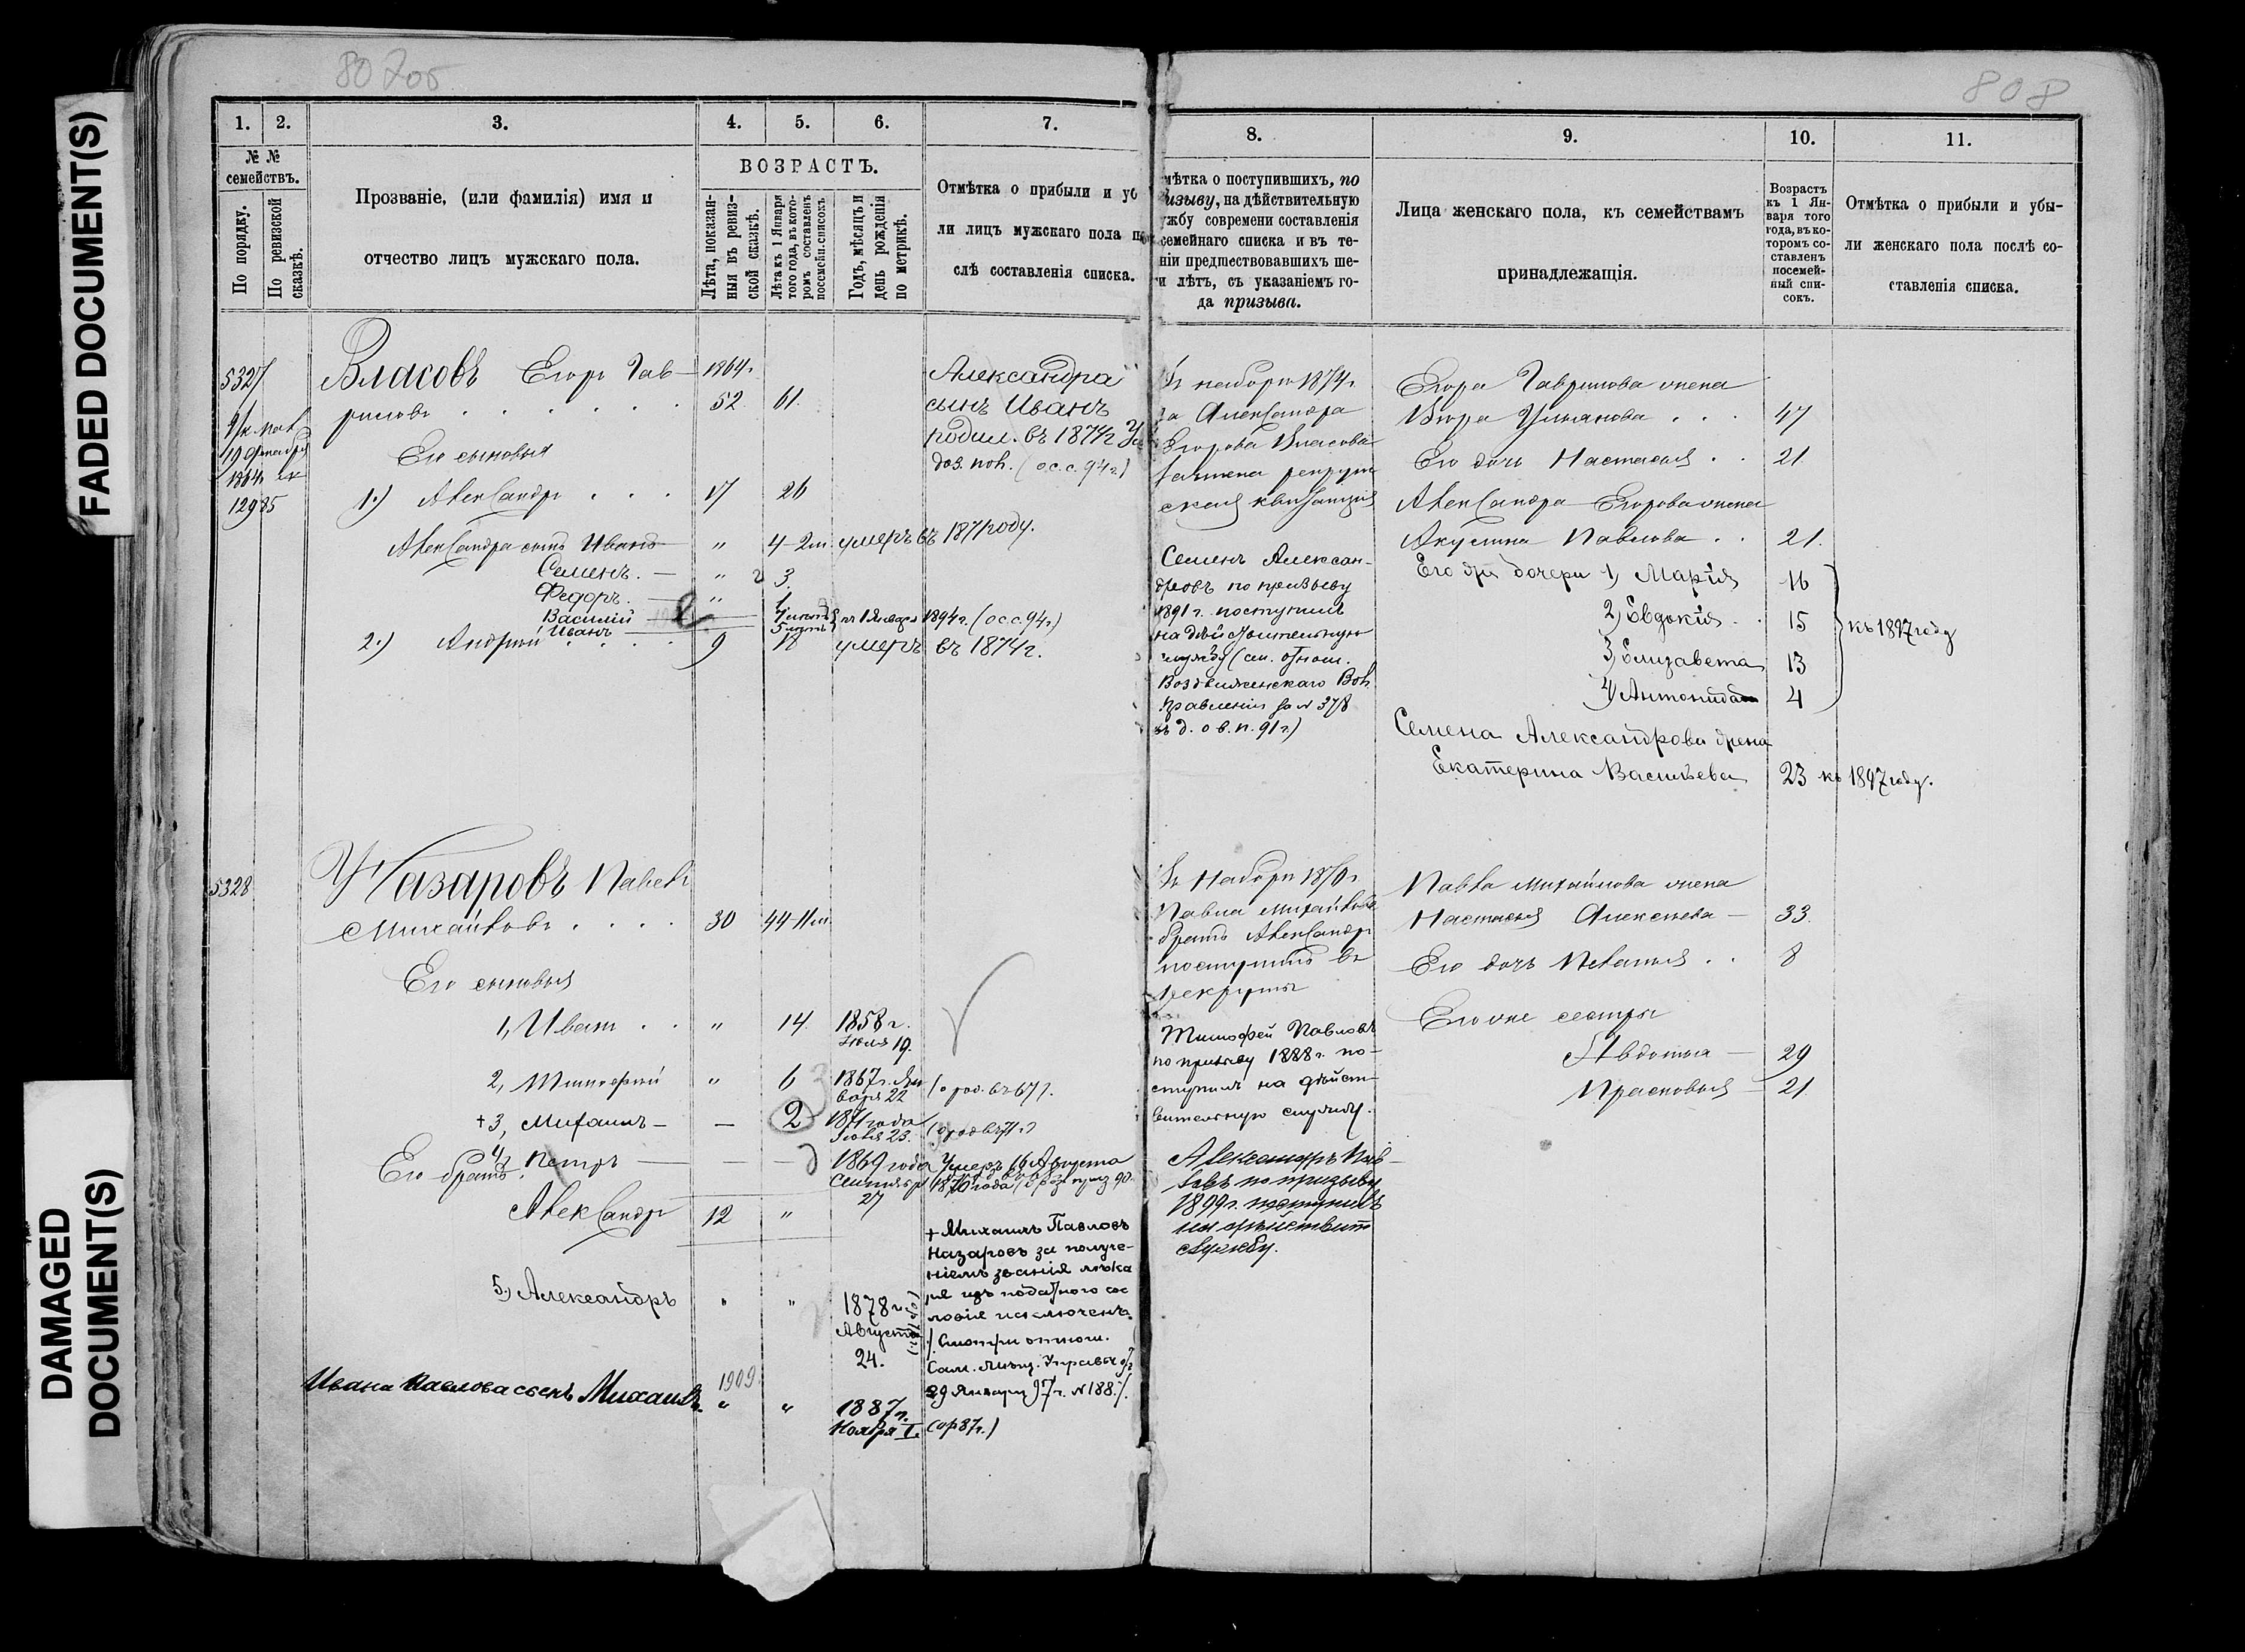 FADED DOCUMENT(S)
DAMAGED
DOCUMENT(S)
808
1. 2. 3. 4. 5. 6. 7.
№ №
семействъ.
По порядку.
По ревизской
сказкѣ.
Прозваніе, (или фамилія) имя и
отчество лицъ мужскаго пола.
ВОЗРАСТЪ.
Лѣта, показан-
ныя въ ревиз-
ской сказкѣ.
Лѣта къ 1 Января
того года, въ кото-
ромъ составленъ
посемейн. списокъ
Годъ, мѣсяцъ и
день рожденія
по метрикѣ.
Отмѣтка о прибыли и уб
ли лицъ мужскаго пола по
слѣ составленія списка.
8. 9. 10. 11.
мѣтка о поступившихъ, по
изыву, на дѣйствительную
ужбу современи составленія
семейнаго списка и въ те-
ніи предшествовавшихъ ше-
и лѣтъ, съ указаніемъ го-
да призыва.
Лица женскаго пола, къ семействамъ
принадлежащія.
Возрастъ
къ 1 Ян-
варя того
года, въ ко-
торомъ со-
ставленъ
посемей-
ный спи-
сокъ.
Отмѣтка о прибыли и убы-
ли женскаго пола послѣ со-
ставленія списка.
5327
1864
12985
Власовъ Егоръ Гав-
риловъ
1864 г.
52 61.
Его сыновья
1.) Александръ 17 26
Александра сынъ Иванъ " 4-2м. умеръ въ 1871 году.
Семенъ. — " 3.
Федоръ. — " 1
Василій
Иванъ
къ 1 Января 1894 г. (ос.с. 94 г.)
2.) Андрей 9 18 умеръ въ 1874 г.
Александра
сынъ Иванъ
родил. въ 1874 г.
(ос.с. 94 г.)
наборъ 1874 г.
за Александра
Егорова Власова
рекрут
ская квитанція
Семенъ Алексан-
дровъ по призыву
1891 г. поступилъ
на дѣйствительную
службу (см. отнош.
Воздвиженскаго Вол.
Правленія за № 378
въ д. о в. п. 91 г.)
Егора Гаврилова жена
Ульянова 47
Его дочь Настасья 21
Александра Егорова жена
Акулина Павлова 21.
Его дочери 1, Марія 16
2) Евдокія 15
3, Елизавета 13
4) Антонида 4
къ 1897 году
Семена Александрова жена
Екатерина Васильева 23 къ 1897 году.
5328
Назаровъ Павелъ
Михайловъ 30 44-11м.
Его сыновья
1, Иванъ " 14. 1858 г.
Іюля 19.
2, Тимофей " 6 1867 г. Ян
варя 22 (о род. въ 67 г.)
+ 3, Михаилъ — — 2 1871 года
23.
4, Петръ — — — 1869 года Умеръ 16 Августа
Сентября 1870 года
27
Его братъ
Александръ 12 "
5.) Александръ " " 1878 г.
Августа
24.
Ивана Павлова сынъ Михаилъ. " " 1887 г.
Ноября 1. (ор 87 г.)
1909.
+ Михаилъ Павловъ
Назаровъ за получе-
ніемъ званія лѣка
ря изъ податного сос
ловія исключенъ
/. Смотри отнош.
Сам. Мѣщ. Управы от
29 Января 97 г. № 188 /.
Въ Наборъ
Павла Михайлова
братъ Александръ
поступилъ въ
рекруты
Тимофей Павловъ
по призыву 1888 г. по-
ступилъ на дѣйст-
вительную службу.
Александръ Пав-
ловъ по призыву
1899 г. поступилъ
на дѣйствит
службу.
Павла Михайлова жена
Настасья Алексеева — 33.
Его дочь Пелагея 8
Его же сестры
Авдотья — 29
Прасковья — 21